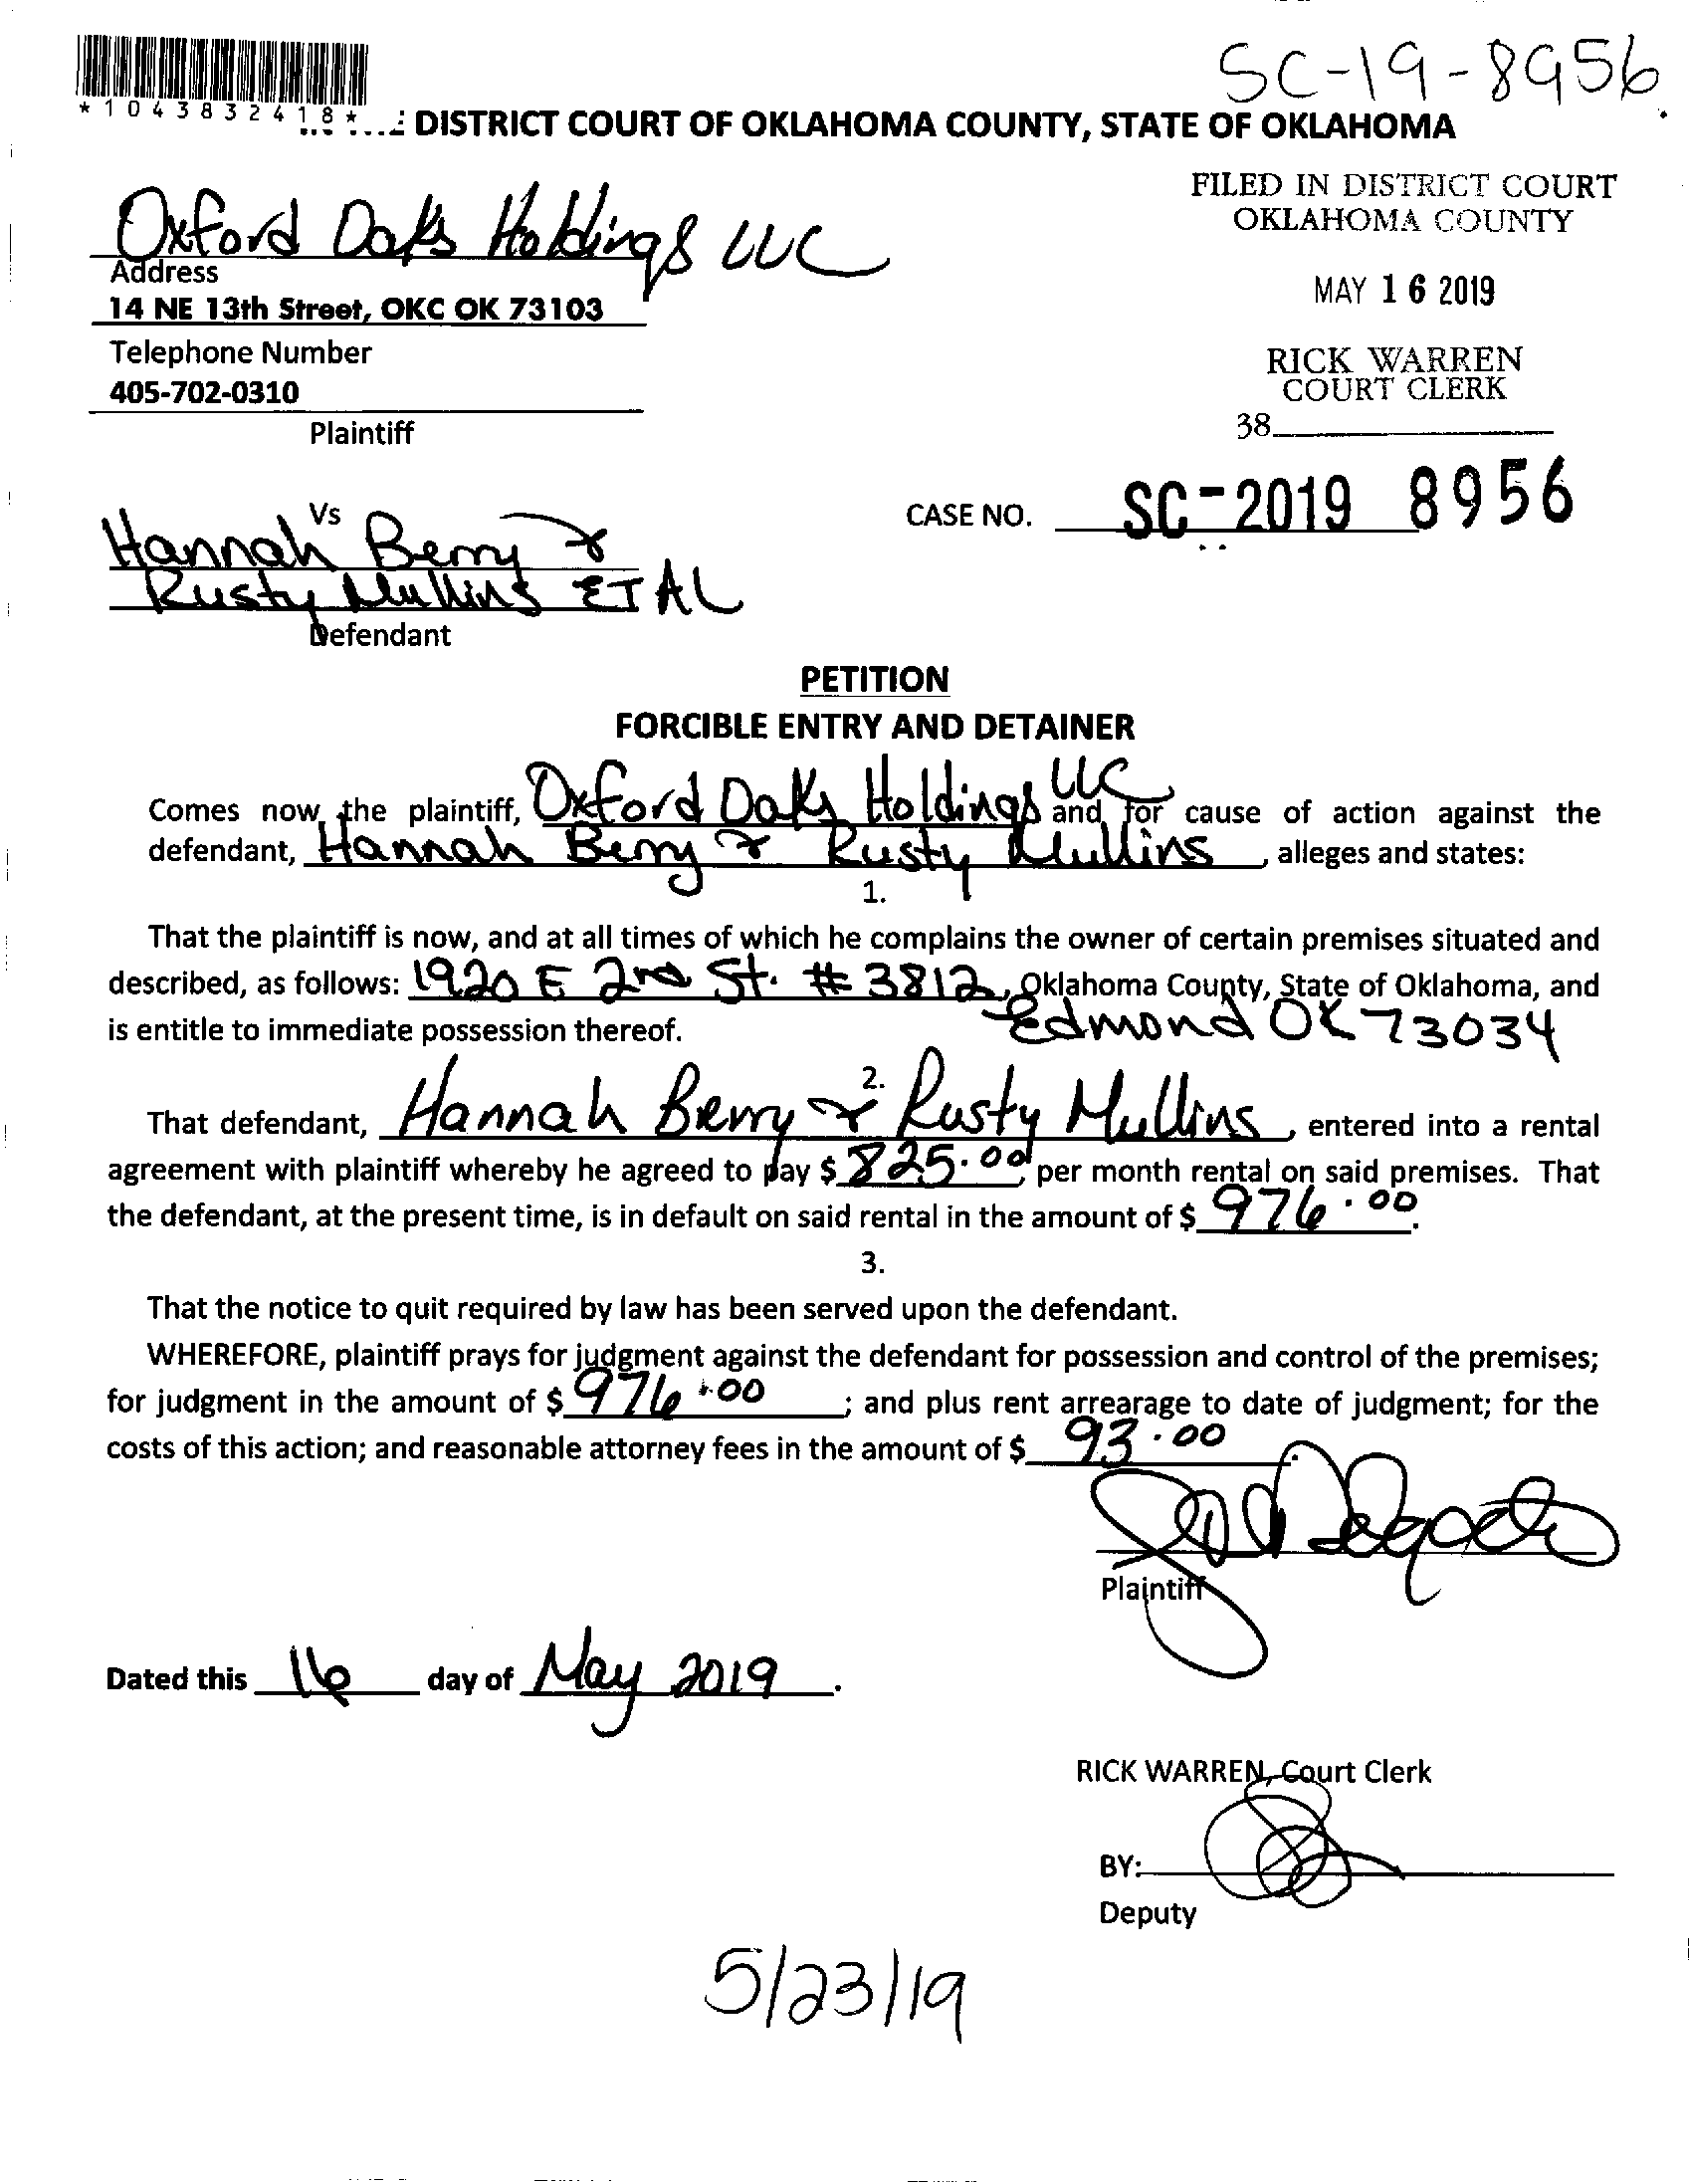 SC-19-8956
*1043832418*
DISTRICT COURT OF OKLAHOMA COUNTY, STATE OF OKLAHOMA
FILED IN DISTRICT COURT
OKLAHOMA COUNTY
MAY 16 2019
RICK WARREN
COURT CLERK
38
Oxford Oaks Holdings LLC
Address
14 NE 13th Street, OKC OK 73103
Telephone Number
405-702-0310
Plaintiff
Vs
CASE NO. SC-2019 8956
Hannah Berry &
Rusty Mullins ET AL
Defendant
PETITION
FORCIBLE ENTRY AND DETAINER
Comes now the plaintiff, Oxford Oaks Holdings LLC and for cause of action against the
defendant, Hannah Berry & Rusty Mullins, alleges and states:
1.
That the plaintiff is now, and at all times of which he complains the owner of certain premises situated and
described, as follows: 1920 E 2nd St. # 3812, Oklahoma County, State of Oklahoma, and
Edmond OK 73034
is entitle to immediate possession thereof.
2.
That defendant, Hannah Berry & Rusty Mullins, entered into a rental
agreement with plaintiff whereby he agreed to pay $ 825.00 per month rental on said premises. That
the defendant, at the present time, is in default on said rental in the amount of $ 976.00.
3.
That the notice to quit required by law has been served upon the defendant.
WHEREFORE, plaintiff prays for judgment against the defendant for possession and control of the premises;
for judgment in the amount of $ 976.00; and plus rent arrearage to date of judgment; for the
costs of this action; and reasonable attorney fees in the amount of $ 93.00.
Plaintiff
Dated this 16 day of May 2019.
RICK WARREN, Court Clerk
BY:
Deputy
5/23/19